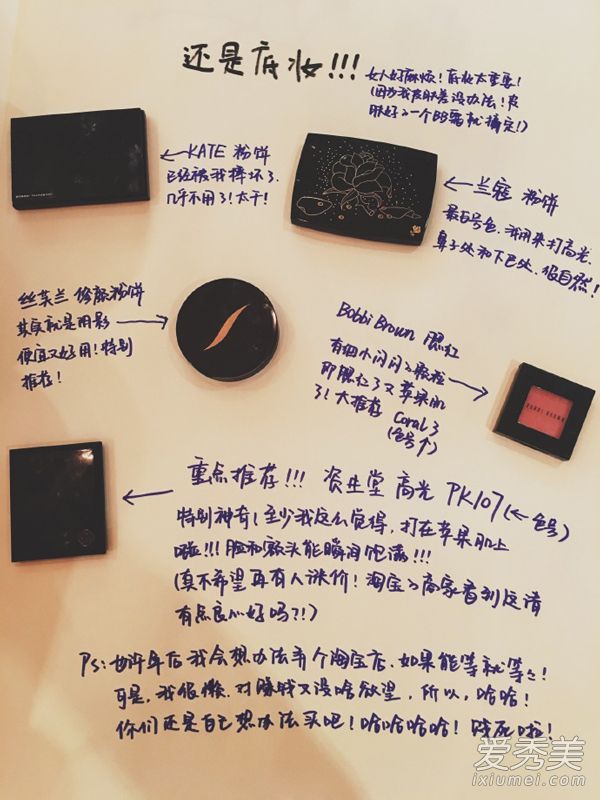 还是底妆!!!
女人好麻烦！底妆太重要！
(因为我皮肤差没办法！皮
肤好的一个BB霜就搞定！)
←KATE 粉饼
已经被我摔坏了，
几乎不用了！太干！
←兰蔻 粉饼
最白号色，我用来打高光，
鼻子处和下巴处，很自然！
丝芙兰 修颜粉饼
其实就是阴影→
便宜又好用！特别
推荐！
Bobbi Brown 腮红
有细小闪闪的颗粒→
即腮红了又苹果肌
了！大推荐 Coral 3
(色号↑)
BOBBI BROWN
← 重点推荐!!! 资生堂 高光 PK107(←色号)
特别神奇！至少我这么觉得，打在苹果肌上
啦!!! 脸和额头能瞬间饱满!!!
(真不希望再有人涨价！淘宝的商家看到这请
有点良心好吗?!)
Ps：也许年后我会想办法弄个淘宝店，如果能等就等等！
可是，我很懒，对赚钱又没啥欲望，所以，哈哈！
你们还是自己想办法买吧！哈哈哈哈！贱死啦！
爱秀美
ixiumei.com